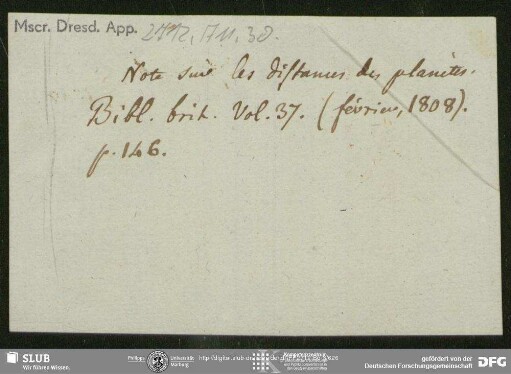 Mscr. Dresd. App. 2712, A11, 38.
Note sur les distances des planètes.
Bibl. brit. Vol. 37. (février, 1808).
p. 146.
SLUB
Wir führen Wissen.
Philipps
Universität
Marburg
http://digital.slub-dresden.de/
gefördert von der
Deutschen Forschungsgemeinschaft
DFG